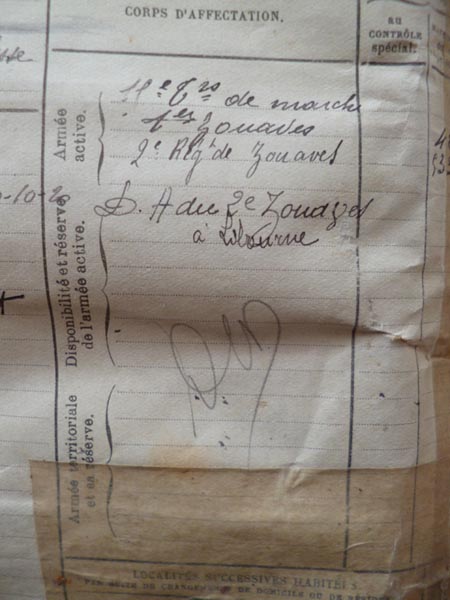 CORPS D'AFFECTATION.
AU
CONTRÔLE
spécial.
Armée
active.
de marche
1er Zouaves
2e Régt de Zouaves
Disponibilité et réserve
de l'armée active.
D. A du 2e Zouaves
à Libourne
Armée territoriale
et sa réserve.
LOCALITÉS SUCCESSIVES HABITÉES
PAR SUITE DE CHANGEMENTS DE DOMICILE OU DE RÉSIDENCE